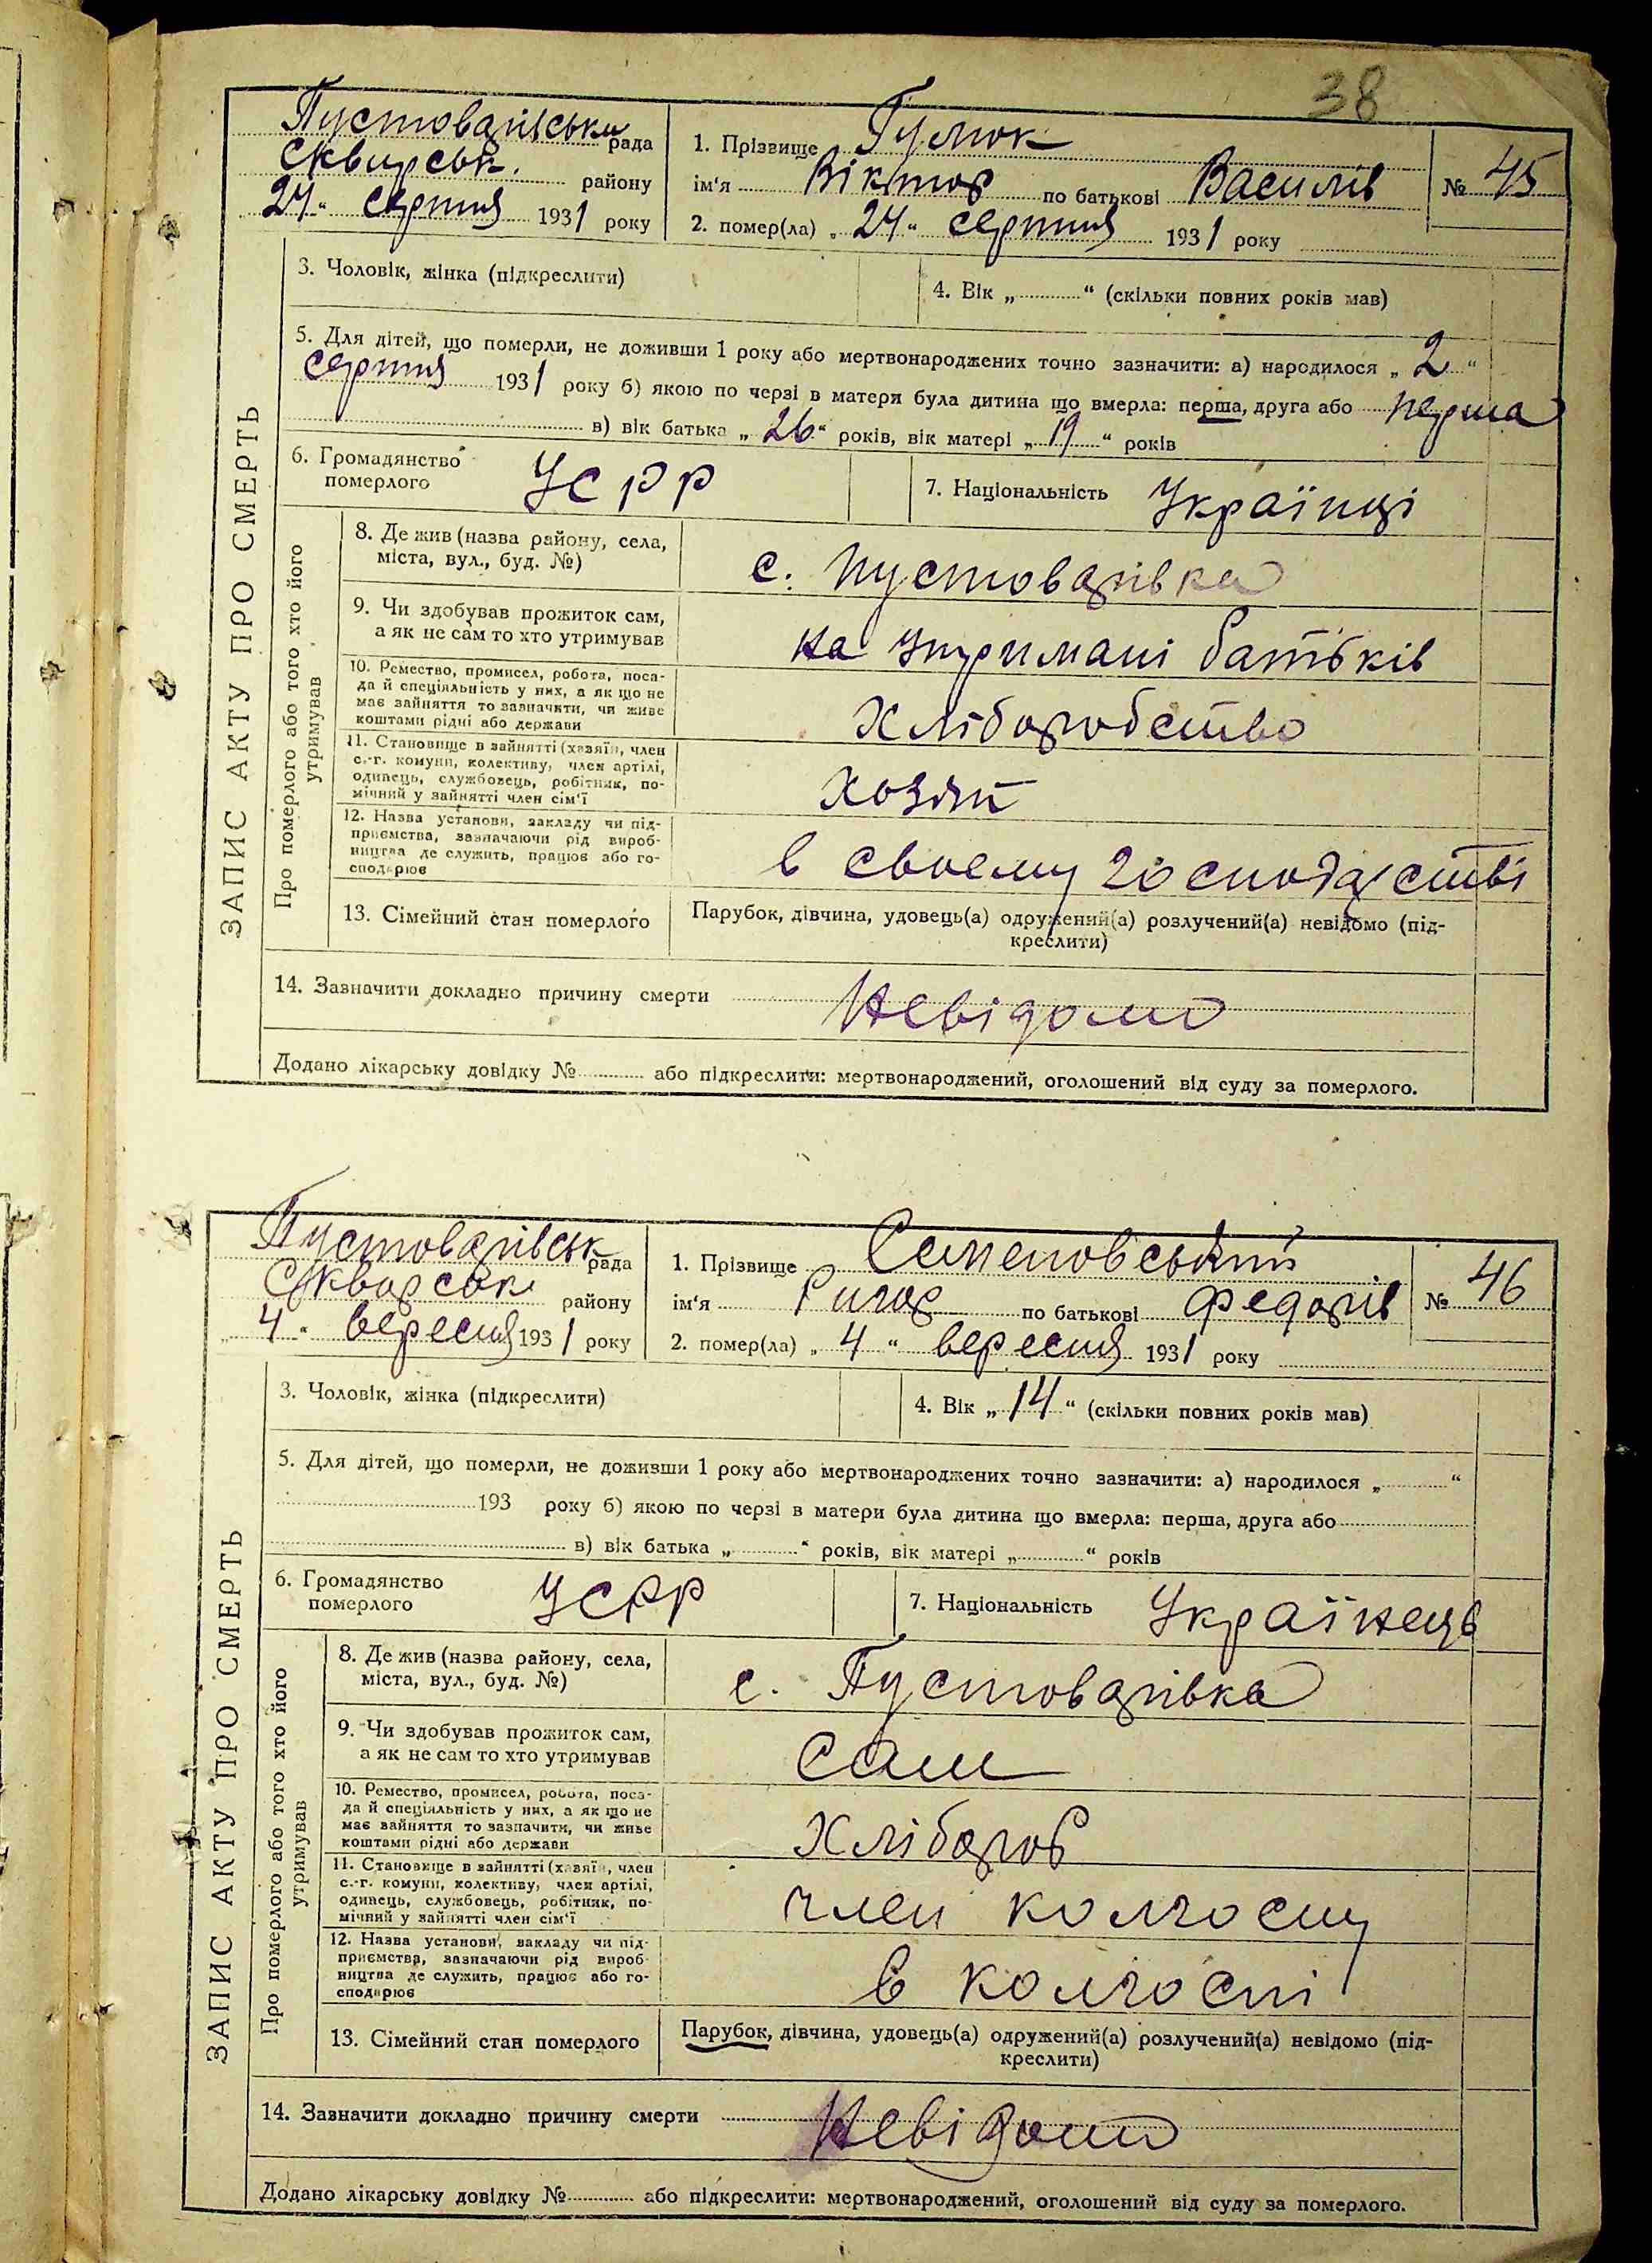 38
Пустоварівська рада
Сквирськ. району
24 " серпня 1931 року
1. Прізвище Гулюк
ім'я Віктор по батькові Василів
№ 45
2. помер(ла) „ 24 " серпня 1931 року
3. Чоловік, жінка (підкреслити)
4. Вік „ " (скільки повних років мав)
5. Для дітей, що померли, не доживши 1 року або мертвонароджених точно зазначити: а) народилося „ 2 "
серпня 1931 року б) якою по черзі в матери була дитина що вмерла: перша, друга або перша
в) вік батька „ 26 " років, вік матері „ 19 " років
6. Громадянство
померлого
УСРР
7. Національність Українці
ЗАПИС АКТУ ПРО СМЕРТЬ
Про померлого або того хто його
утримував
8. Де жив (назва району, села,
міста, вул., буд. №)
с. Пустоварівка
9. Чи здобував прожиток сам,
а як не сам то хто утримував
на утримані батьків
10. Ремество, промисел, робота, поса-
да й спеціяльність у них, а як що не
має зайняття то зазначити, чи живе
коштами рідні або держави
Хліборобство
11. Становище в зайнятті (хазяїн, член
с.-г. комуни, колективу, член артілі,
одинець, службовець, робітник, по-
мічний у зайнятті член сім'ї
хозяїн
12. Назва установи, закладу чи під-
приємства, зазначаючи рід вироб-
ництва де служить, працює або го-
сподарює
в своему господарстві
13. Сімейний стан померлого
Парубок, дівчина, удовець(а) одружений(а) розлучений(а) невідомо (під-
креслити)
14. Зазначити докладно причину смерти Невідомо
Додано лікарську довідку № або підкреслити: мертвонароджений, оголошений від суду за померлого.
Пустоварівськ рада
Скворськ району
„ 4 " вересня 1931 року
1. Прізвище Семеновський
ім'я Ригор по батькові Федорів
№ 46
2. помер(ла) „ 4 " вересня 1931 року
3. Чоловік, жінка (підкреслити)
4. Вік „ 14 " (скільки повних років мав)
5. Для дітей, що померли, не доживши 1 року або мертвонароджених точно зазначити: а) народилося „ "
193 року б) якою по черзі в матери була дитина що вмерла: перша, друга або
в) вік батька „ " років, вік матері „ " років
6. Громадянство
померлого
УСРР
7. Національність Українець
ЗАПИС АКТУ ПРО СМЕРТЬ
Про померлого або того хто його
утримував
8. Де жив (назва району, села,
міста, вул., буд. №)
с. Пустоварівка
9. Чи здобував прожиток сам,
а як не сам то хто утримував
Сам
10. Ремество, промисел, робота, поса-
да й спеціяльність у них, а як що не
має зайняття то зазначити, чи живе
коштами рідні або держави
Хлібороб
11. Становище в зайнятті (хазяїн, член
с.-г. комуни, колективу, член артілі,
одинець, службовець, робітник, по-
мічний у зайнятті член сім'ї
член колгоспу
12. Назва установи, закладу чи під-
приємства, зазначаючи рід вироб-
ництва де служить, працює або го-
сподарює
в колгоспі
13. Сімейний стан померлого
Парубок, дівчина, удовець(а) одружений(а) розлучений(а) невідомо (під-
креслити)
14. Зазначити докладно причину смерти Невідомо
Додано лікарську довідку № або підкреслити: мертвонароджений, оголошений від суду за померлого.